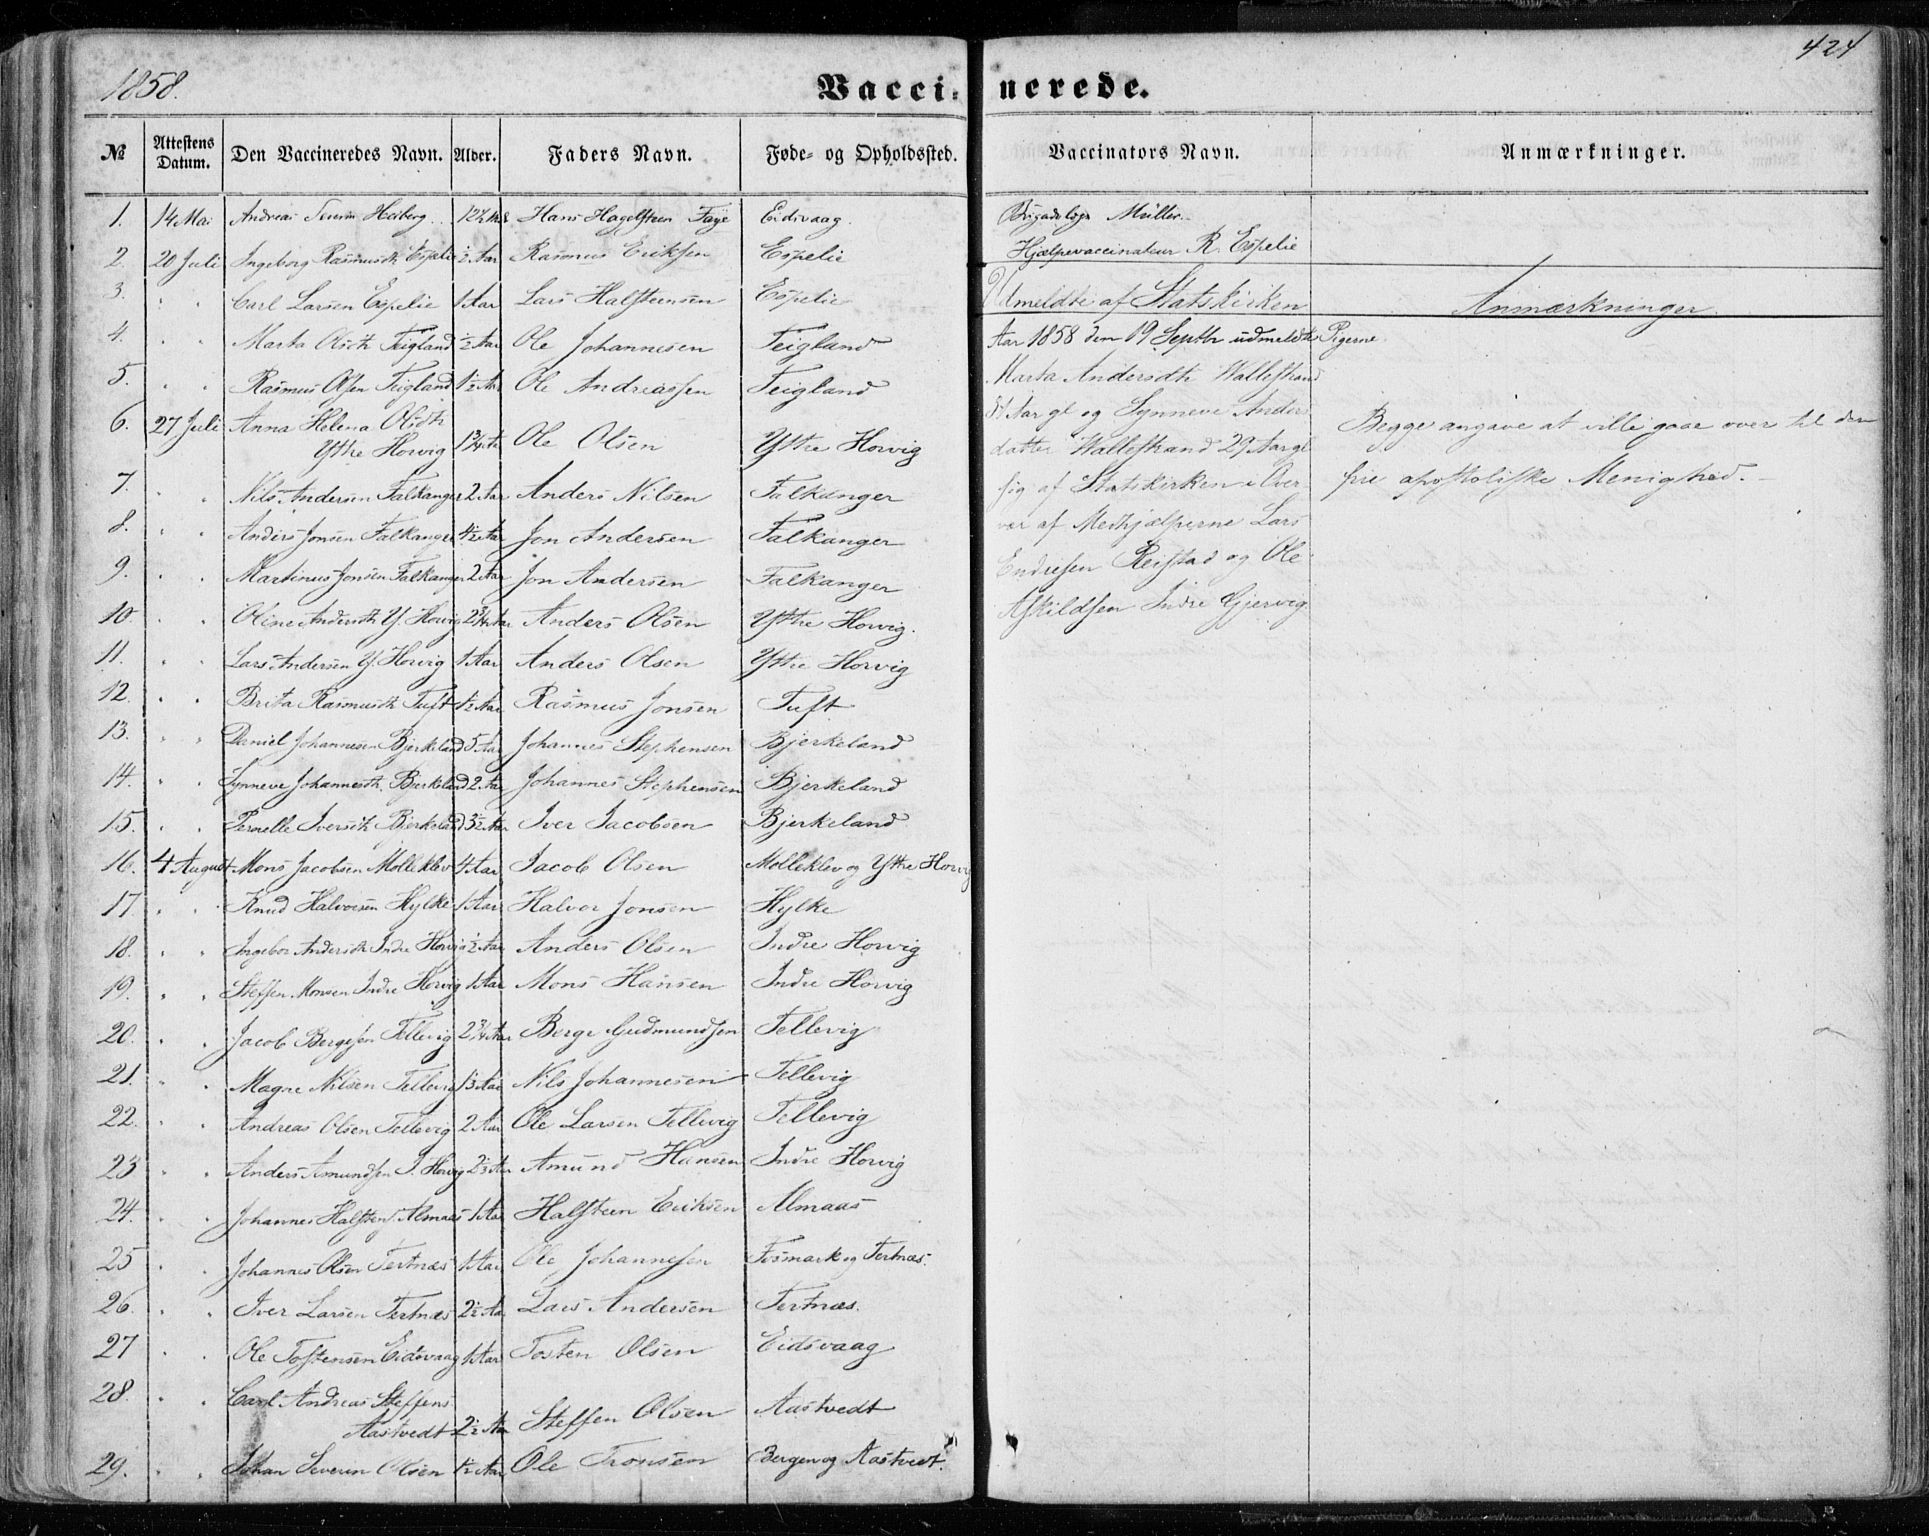 1858.
424
Vaccinerede.
№ Attestens Datum. Den Vaccineredes Navn. Alder. Faders Navn. Føde- og Opholdssted. Vaccinators Navn. Anmærkninger.
1. 14 Mai Andreas Heiberg Hans Hagelsteen Faye Eidsvaag Müller
2. 20 Juli Ingeborg Rasmusdtr Espelie ½ Aar Rasmus Eriksen Espelie Hjælpevaccinateur R. Espelie
3. " " Carl Larsen Espelie 1 Aar Lars Halsteensen Espelie
4. " " Marta Olsdtr Teigland ½ Aar Ole Johannesen Teigland
5. " " Rasmus Olsen Teigland 1½ Aar Ole Andreassen Teigland
6. 27 Juli Anna Helena Olsdtr
Ytre Horvig 1¾ Aar Ole Olsen Ytre Horvig
7. " " Nils Andersen Falkanger 2 Aar Anders Nilsen Falkanger
8. " " Anders Jonsen Falkanger 4½ Aar Jon Andersen Falkanger
9. " " Martinus Jonsen Falkanger 2 Aar Jon Andersen Falkanger
10. " " Oline Andersdtr Y. Horvig 2¾ Aar Anders Olsen Ytre Horvig.
11. " " Lars Andersen Y. Horvig 1 Aar Anders Olsen Ytre Horvig
12. " " Brita Rasmusdtr Tuft 1½ Aar Rasmus Jonsen Tuft
13. " " Daniel Johannesen Bjerkeland 5 Aar Johannes Stephensen Bjerkeland
14. " " Synneve Johannesdtr. Bjerkeland 2 Aar Johannes Stephensen Bjerkeland
15. " " Pernelle Iversdtr Bjerkeland 3½ Aar Iver Jacobsen Bjerkeland
16. 4 August Mons Jacobsen Molleklev 4 Aar Jacob Olsen Molleklev og Ytre Horvig
17. " " Knud Halvorsen Hylke 1 Aar Halvor Jonsen Hylke
18. " " Ingebor Andersdtr Indre Horvig ½ Aar Anders Olsen Indre Horvig
19. " " Steffen Monsen Indre Horvig 1 Aar Mons Hansen Indre Horvig
20. " " Jacob Bergesen Tellevig 2¾ Aar Berge Gudmundsen Tellevig
21. " " Magne Nilsen Tellevig Nils Johannesen Tellevig
22. " " Andreas Olsen Tellevig 2 Aar Ole Larsen Tellevig Tellevig
23 " " Anders Amundsen I. Horvig Amund Hansen Indre Horvig
24. " " Johannes Halstens. Almaas 1 Aar Halsteen Eriksen Almaas
25 " " Johannes Olsen Tertnæs 1 Aar Ole Johannesen Tosmark og Tertnæs.
26. " " Iver Larsen Tertnæs 2½ Aar Lars Andersen Tertnæs.
27 " " Ole Tostensen Eidsvaag 1 Aar Tosten Olsen Eidsvaag
28. " " Carl Andreas Steffens
Aastvedt 2½ Aar Steffen Olsen Aastvedt
29. " " Johan Severin Olsen ½ Aar Ole Tronsen Bergen og Aastvedt.
Udmeldte af Statskirken Anmærkninger.
Aar 1858 den 19 Septbr udmeldte Pigerne
Marta Andersdtr Wallestrand
Aar gl og Synneve Anders
datter Wallestrand 29 Aar gl
sig af Statskirken i Over
vær af Medhjælperne Lars
Endresen Reistad og Ole
Askildsen Indre Gjervig.
Begge angave at ville gaae over til den
frie apostoliske Menighed.